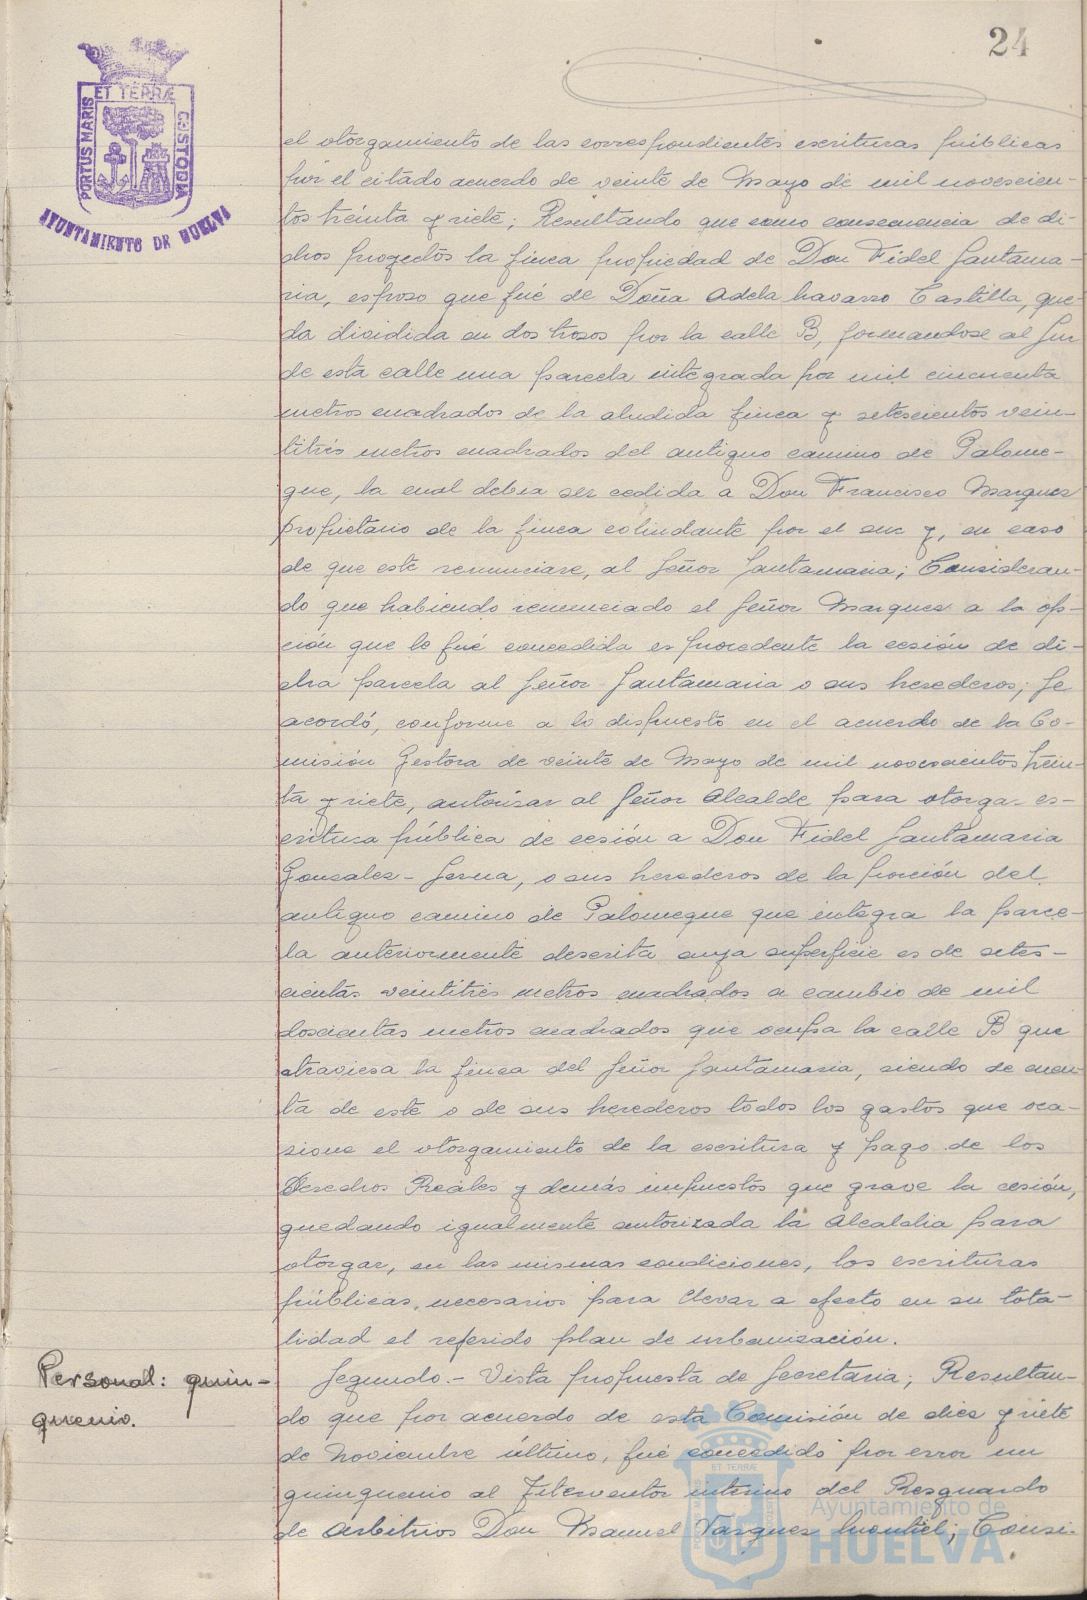 24
ET TERRÆ
PORTUS MARIS
CUSTODIA
AYUNTAMIENTO DE HUELVA
el otorgamiento de las correspondientes escrituras públicas
por el citado acuerdo de veinte de Mayo de mil novescien-
tos treinta y siete; Resultando que como consecuencia de di-
chos proyectos la finca propiedad de Don Fidel Santama-
ria, esposo que fué de Doña Adela Navarro Castilla, que-
da dividida en dos trozos por la calle B, formandose al Sur
de esta calle una parcela integrada por mil cincuenta
metros cuadrados de la aludida finca y setescientos vein-
titrés metros cuadrados del antiguo camino de Palome-
que, la cual debia ser cedida a Don Francisco Marquez
propietario de la finca colindante por el sur y, en caso
de que este renunciare, al Señor Santamaria; Consideran-
do que habiendo renunciado el Señor Marquez a la op-
ción que le fué concedida es procedente la cesión de di-
cha parcela al Señor Santamaria o sus herederos; Se
acordó, conforme a lo dispuesto en el acuerdo de la Co-
misión Gestora de veinte de Mayo de mil novescientos trein-
ta y siete, autorizar al Señor Alcalde para otorgar es-
critura pública de cesión a Don Fidel Santamaria
Gonzalez-Serna, o sus herederos de la porción del
antiguo camino de Palomeque que integra la parce-
la anteriormente descrita cuya superficie es de setes-
cientos veintitres metros cuadrados a cambio de mil
doscientos metros cuadrados que ocupa la calle B que
atraviesa la finca del Señor Santamaria, siendo de cuen-
ta de este o de sus herederos todos los gastos que oca-
sione el otorgamiento de la escritura y pago de los
Derechos Reales y demás impuestos que grave la cesión,
quedando igualmente autorizada la Alcaldia para
otorgar, en las mismas condiciones, las escrituras
públicas, necesarias para llevar a efecto en su tota-
lidad el referido plan de urbanización.
Personal: quin-
quenio.
Segundo.- Vista propuesta de Secretaria; Resultan-
do que por acuerdo de esta Comisión de diez y siete
de Noviembre último, fué concedido por error un
quinquenio al Interventor interino del Resguardo
de Arbitrios Don Manuel Vazquez Montiel; Consi-
Ayuntamiento de
HUELVA